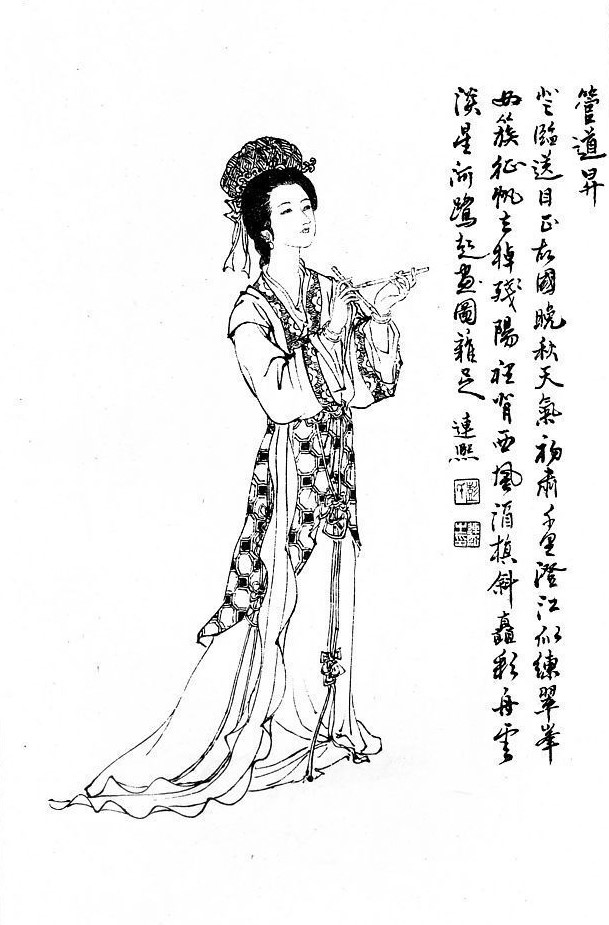 管道昇
登臨送目正故國晚秋天氣初肅千里澄江似練翠峯
如簇征帆去棹殘陽裡背西風酒旗斜矗彩舟雲
淡星河鷺起畫圖難足 連熙